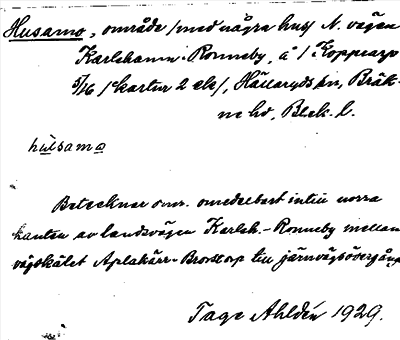 Husamo, område /med några hus/ N. vägen
Karlshamn - Ronneby, å 1 Kopparp
5/16 /kartur 2 ele/, Hällaryds sn, Bräk-
ne hd, Blek. l.
husama
Betecknar omr. omedelbart intill norra
kanten av landsvägen Karlsh.-Ronneby mellan
vägskälet Aplakärr-Brostorp till järnvägsövergång
Tage Ahldén 1929.